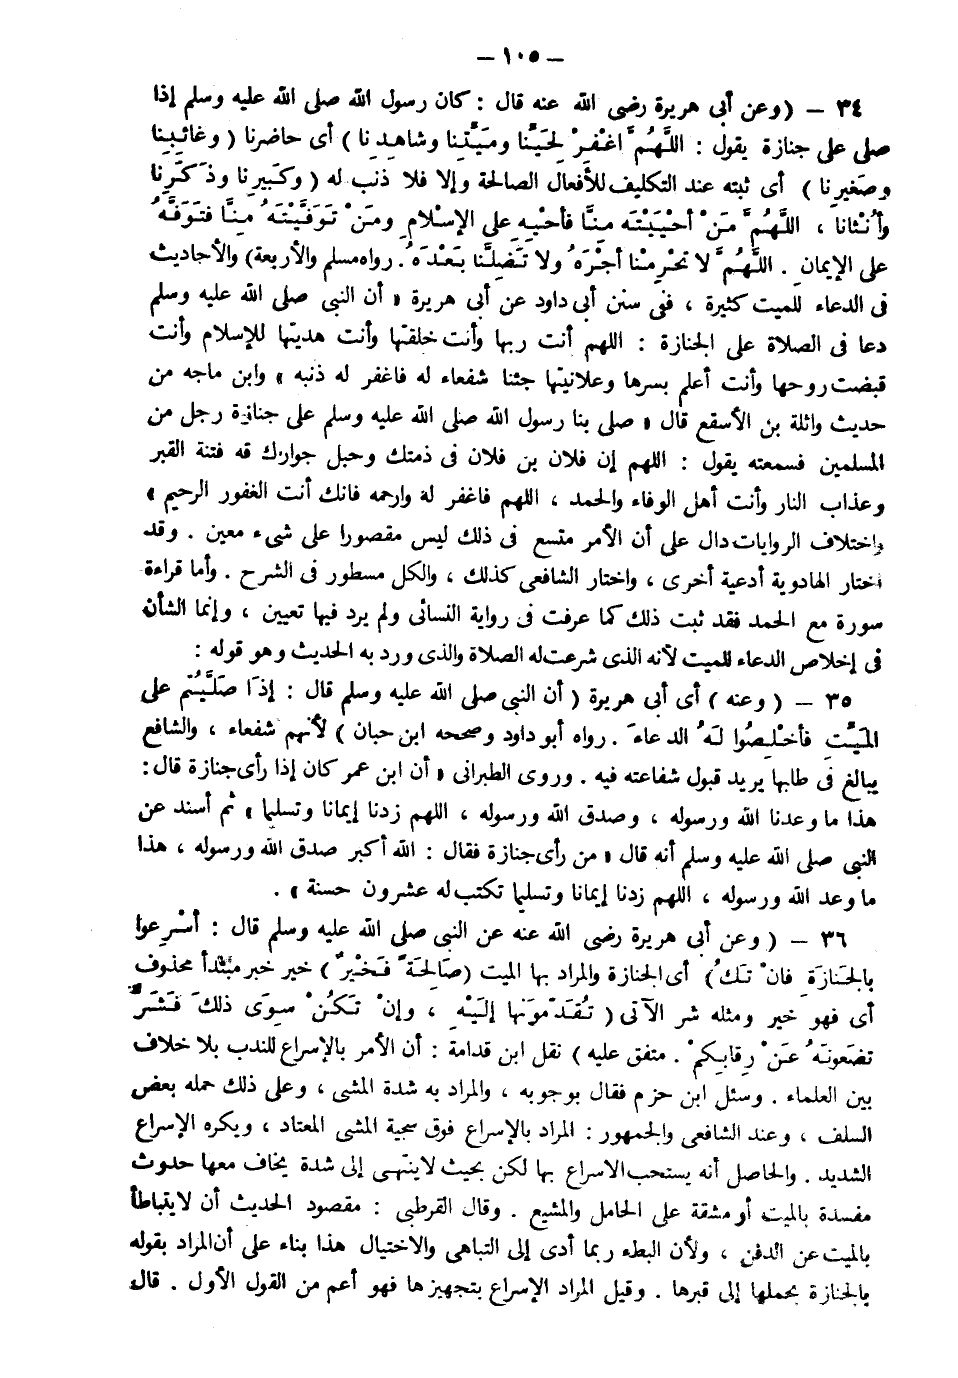 — ١٠٥ —
٣٤ — (وعن أبى هريرة رضى الله عنه قال : كان رسول الله صلى الله عليه وسلم إذا
صلى على جنازة يقول : اللَّهُمَّ اغْفِرْ لِحَيِّنا ومَيِّتِنا وشاهِدِنا ) أى حاضرنا ( وغائِبِنا
وصَغيرِنا ) أى ثبته عند التكليف للأفعال الصالحة وإلا فلا ذنب له ( وكَبيرِنا وذَكَرِنا
وأُنْثانا ، اللَّهُمَّ مَنْ أحْيَيْتَه مِنَّا فأحْيِهِ على الإسْلامِ ومَنْ تَوَفَّيْتَهُ مِنَّا فتَوَفَّهُ
على الإيمانِ . اللَّهُمَّ لا تَحْرِمْنا أجْرَهُ ولا تَضِلَّنا بَعْدَهُ . رواه مسلم والأربعة) والأحاديث
فى الدعاء للميت كثيرة ، ففى سنن أبى داود عن أبى هريرة « أن النبى صلى الله عليه وسلم
دعا فى الصلاة على الجنازة : اللهم أنت ربها وأنت خلقتها وأنت هديتها للإسلام وأنت
قبضت روحها وأنت أعلم بسرها وعلانيتها جئنا شفعاء له فاغفر له ذنبه » وابن ماجه من
حديث واثلة بن الأسقع قال « صلى بنا رسول الله صلى الله عليه وسلم على جنازة رجل من
المسلمين فسمعته يقول : اللهم إن فلان بن فلان فى ذمتك وحبل جوارك قه فتنة القبر
وعذاب النار وأنت أهل الوفاء والحمد ، اللهم فاغفر له وارحمه فانك أنت الغفور الرحيم »
واختلاف الروايات دال على أن الأمر متسع فى ذلك ليس مقصورا على شىء معين . وقد
اختار الهادوية أدعية أخرى ، واختار الشافعى كذلك ، والكل مسطور فى الشرح . وأما قراءة
سورة مع الحمد فقد ثبت ذلك كما عرفت فى رواية النسائى ولم يرد فيها تعيين ، وإنما الشأن
فى إخلاص الدعاء للميت لأنه الذى شرعت له الصلاة والذى ورد به الحديث وهو قوله :
٣٥ — ( وعنه ) أى أبى هريرة ( أن النبى صلى الله عليه وسلم قال : إذَا صَلَّيْتُم على
المَيِّتِ فأخْلِصُوا لَهُ الدعاءَ . رواه أبو داود وصححه ابن حبان ) لأنهم شفعاء ، والشافع
يبالغ فى طلبها يريد قبول شفاعته فيه . وروى الطبرانى « أن ابن عمر كان إذا رأى جنازة قال :
هذا ما وعدنا الله ورسوله ، وصدق الله ورسوله ، اللهم زدنا إيمانا وتسليما » ثم أسند عن
النبى صلى الله عليه وسلم أنه قال « من رأى جنازة فقال : الله أكبر صدق الله ورسوله ، هذا
ما وعد الله ورسوله ، اللهم زدنا إيمانا وتسليما تكتب له عشرون حسنة » .
٣٦ — ( وعن أبى هريرة رضى الله عنه عن النبى صلى الله عليه وسلم قال : أسْرِعوا
بالجَنازَةِ فانْ تَكُ) أى الجنازة والمراد بها الميت (صَالِحَةً فَخَيْرٌ ) خير خبر مبتدأ محذوف
أى فهو خير ومثله شر الآتى ( تُقَدِّمونَها إلَيْهِ ، وإنْ تَكُنْ سِوَى ذلكَ فَشَرٌّ
تضَعونَهُ عَنْ رِقابِكمْ . متفق عليه ) نقل ابن قدامة : أن الأمر بالإسراع للندب بلا خلاف
بين العلماء . وسئل ابن حزم فقال بوجوبه ، والمراد به شدة المشى ، وعلى ذلك حمله بعض
السلف ، وعند الشافعى والجمهور : المراد بالإسراع فوق سجية المشى المعتاد ، ويكره الإسراع
الشديد . والحاصل أنه يستحب الاسراع بها لكن بحيث لا ينتهى إلى شدة يخاف معها حدوث
مفسدة بالميت أو مشقة على الحامل والمشيع . وقال القرطبى : مقصود الحديث أن لا يتباطأ
بالميت عن الدفن ، ولأن البطء ربما أدى إلى التباهى والاختيال هذا بناء على أن المراد بقوله
بالجنازة بحملها إلى قبرها . وقيل المراد الإسراع بتجهيزها فهو أعم من القول الأول . قال